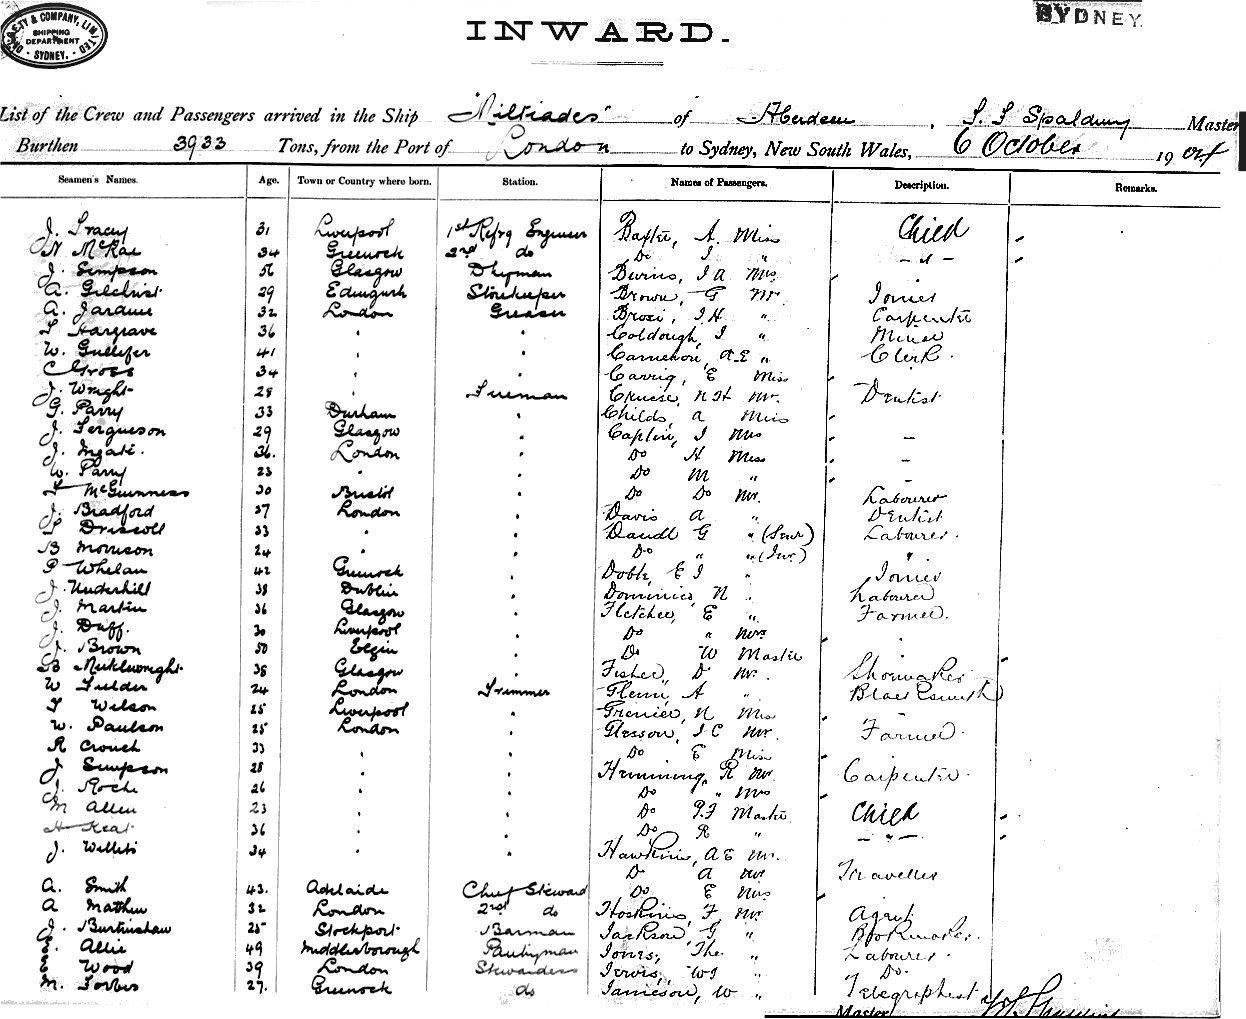 DALGETY & COMPANY, LIMITED
SHIPPING DEPARTMENT
SYDNEY.
SYDNEY
INWARD.
List of the Crew and Passengers arrived in the Ship "Miltiades" of Aberdeen, S. S Spalding Master
Burthen 3933 Tons, from the Port of London to Sydney, New South Wales, 6 October 1904
Seamen's Names. Age. Town or Country where born. Station. Names of Passengers. Description. Remarks.
J. Tracey 31 Liverpool 1st Refrg Engineer Baxter, A. Miss Child
N McRae 34 Greenock 2nd do Do I " - " -
J. Simpson 56 Glasgow Burns, I A Mrs
A. Gilchrist 29 Storekeeper Brown, G Mr. Joiner
A. Jardine 32 London Greaser I.H. " Carpenter
Hargrave 36 " " Coldough, I " Miner
W. Gullifer 41 " " Cameron, A.E " Clerk.
C Gross 34 " " Carrig, E Miss
J. Wright 28 " Fireman Cruise, N H Mr. Dentist
G. Parry 33 Durham " Childs, A Miss
J. Ferguson 29 Glasgow " Caplin, I Mrs -
J. Ingate. 36. London " Do H Miss -
W. Parry 23 " " Do M " -
McGuinness 30 Bristol " Do Do Mr. Labourer
J. Bradford 37 London " Davis A " Dentist
Driscoll 33 " " G " (Senr) Labourer.
B Morrison 24 " " Do " " (Junr) "
P Whelan 42 Greenock " E J " Joiner
J. Underhill 38 Dublin " N " Labourer
J. Martin 36 Glasgow " Fletcher, E " Farmer
J. Duff. 30 Liverpool " Do " Mrs "
J. Brown 50 Elgin " Do W Master "
38 Glasgow " Fisher, D Mr. Shoemaker
W Fielder 24 London Trimmer Glenn, A " Blacksmith
T Wilson 25 Liverpool " Grenier, N Miss -
W. Paulson 25 London " I C Mr. Farmer.
R Crouch 33 " " Do E Miss
J Simpson 28 " " Hemming, R Mr. Carpenter.
J. Roche 26 " " Do " Mrs
M Allen 23 " " Do P.J Master Child
H Keat 36 " " Do R " - " -
J. Willets 34 " " Hawkins, A E Mr.
Do A Mr Traveller
A. Smith 43. Adelaide Chief Steward Do E Mrs
A Matthew 32 London 2nd do Hoskins, F Mr Agent
J. Burtinshaw 25 Stockport Barman Jackson G " Bookmaker.
E. Allie 49 Middlesborough Pantryman Jones, Tho " Labourer
E Wood 39 London Stewardess Irvis, W I " Do.
M. Forbes 27. Greenock do Jamieson, W " Telegraphist
Master